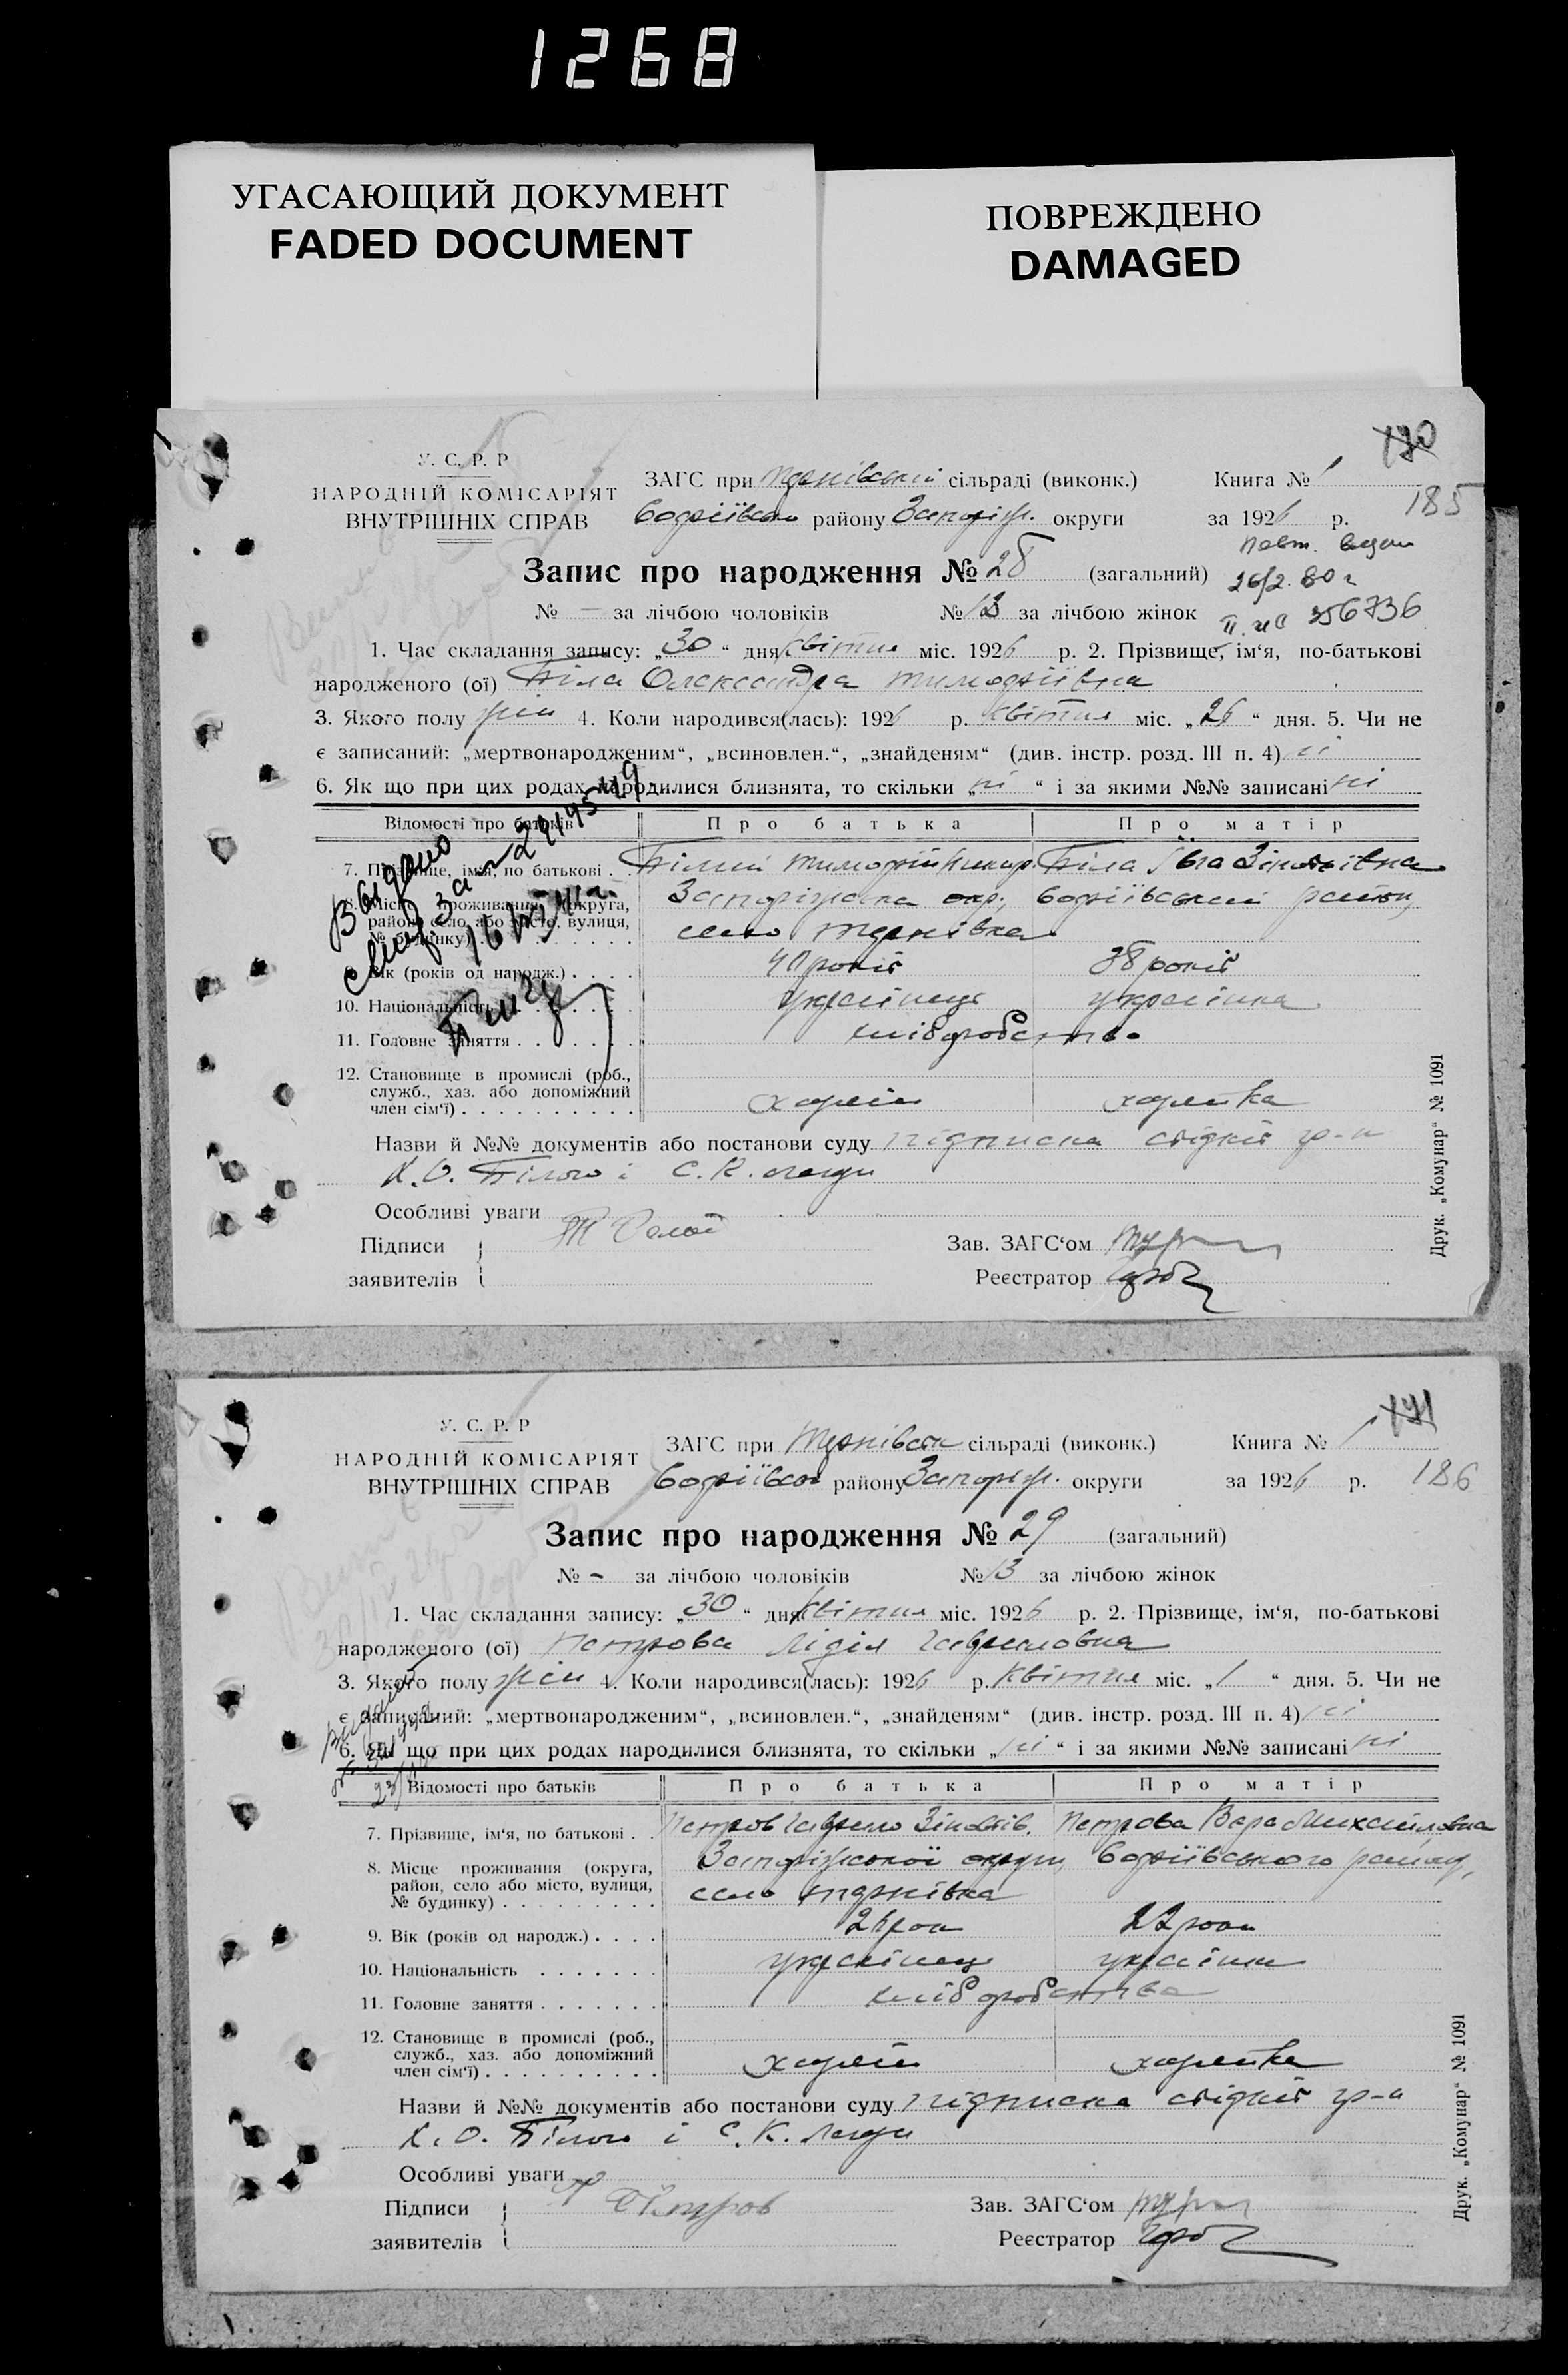 1268
УГАСАЮЩИЙ ДОКУМЕНТ
FADED DOCUMENT
ПОВРЕЖДЕНО
DAMAGED
170
185
У. С. Р. Р
НАРОДНІЙ КОМІСАРІЯТ
ВНУТРІШНІХ СПРАВ
ЗАГС при Тернівській сільраді (виконк.) Книга № 1
Софіївськ району Запоріж. округи за 1926 р.
Повт. видан
26/2. 80 г
356736
Запис про народження № 28 (загальний)
№ — за лічбою чоловіків № за лічбою жінок
1. Час складання запису: „30“ дня квітня міс. 1926 р. 2. Прізвище, ім‘я, по-батькові
народженого (ої) Біла Олександра Тимофіївна
3. Якого полу жін 4. Коли народився(лась): 1926 р. квітня міс. „26“ дня. 5. Чи не
є записаний: „мертвонародженим“, „всиновлен.“, „знайденям“ (див. інстр. розд. III п. 4) ні
6. Як що при цих родах народилися близнята, то скільки „ні“ і за якими №№ записані ні
Відомості про батьків Про батька Про матір
7. Прізвище, імя, по батькові . . Білий Тимофій Біла Зіновіївна
8. Місце проживання (округа, Запоріжська окр., Софіївський район,
район, село, або місто, вулиця, село Тернівка
№ будинку)
9. Вік (років од народж.) . . . . років 38 років
10. Національність українець українка
11. Головне заняття хліборобство
12. Становище в промислі (роб.,
служб., хаз. або допоміжний
член сім‘ї) хазяїн хазяйка
Видано
Назви й №№ документів або постанови суду підписка свідків гр-н
Х. О. Білого і С. К.
Особливі уваги
Підписи Зав. ЗАГС‘ом
заявителів Реєстратор
Друк. „Комунар“ № 1091
171
186
У. С. Р. Р
НАРОДНІЙ КОМІСАРІЯТ
ВНУТРІШНІХ СПРАВ
ЗАГС при Тернівськ сільраді (виконк.) Книга № 1
Софіївськ району Запоріж. округи за 1926 р.
Запис про народження № 29 (загальний)
№ - за лічбою чоловіків № 13 за лічбою жінок
1. Час складання запису: „30“ дня квітня міс. 1926 р. 2. Прізвище, ім‘я, по-батькові
народженого (ої) Петрова Лідія Гавриловна
3. Якого полу жін 4. Коли народився(лась): 1926 р. квітня міс. „1“ дня. 5. Чи не
є записаний: „мертвонародженим“, „всиновлен.“, „знайденям“ (див. інстр. розд. III п. 4) ні
6. Як що при цих родах народилися близнята, то скільки „ні“ і за якими №№ записані ні
Відомості про батьків Про батька Про матір
7. Прізвище, ім‘я, по батькові . . Петров Гаврило Зіновів. Петрова Вера Михайловна
8. Місце проживання (округа, Запоріжської округи, Софіївського району,
район, село або місто, вулиця, село Тернівка
№ будинку)
9. Вік (років од народж.) . . . . 22 роки
10. Національність українець українка
11. Головне заняття хліборобства
12. Становище в промислі (роб.,
служб., хаз. або допоміжний
член сім‘ї) хазяїн хазяйка
Назви й №№ документів або постанови суду підписка свідків гр-н
Х. О. Білого і С. К.
Особливі уваги
Підписи Петров Зав. ЗАГС‘ом
заявителів Реєстратор
Друк. „Комунар“ № 1091